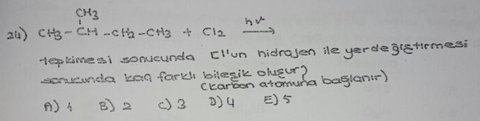 CH₃
24) CH₃ - CH - CH₂ - CH₃ + Cl₂ hν →
tepkimesi sonucunda Cl'un hidrojen ile yerdeğiştirmesi
sonucunda kaç farklı bileşik oluşur?
(karbon atomuna bağlanır)
A) 1 B) 2 C) 3 D) 4 E) 5